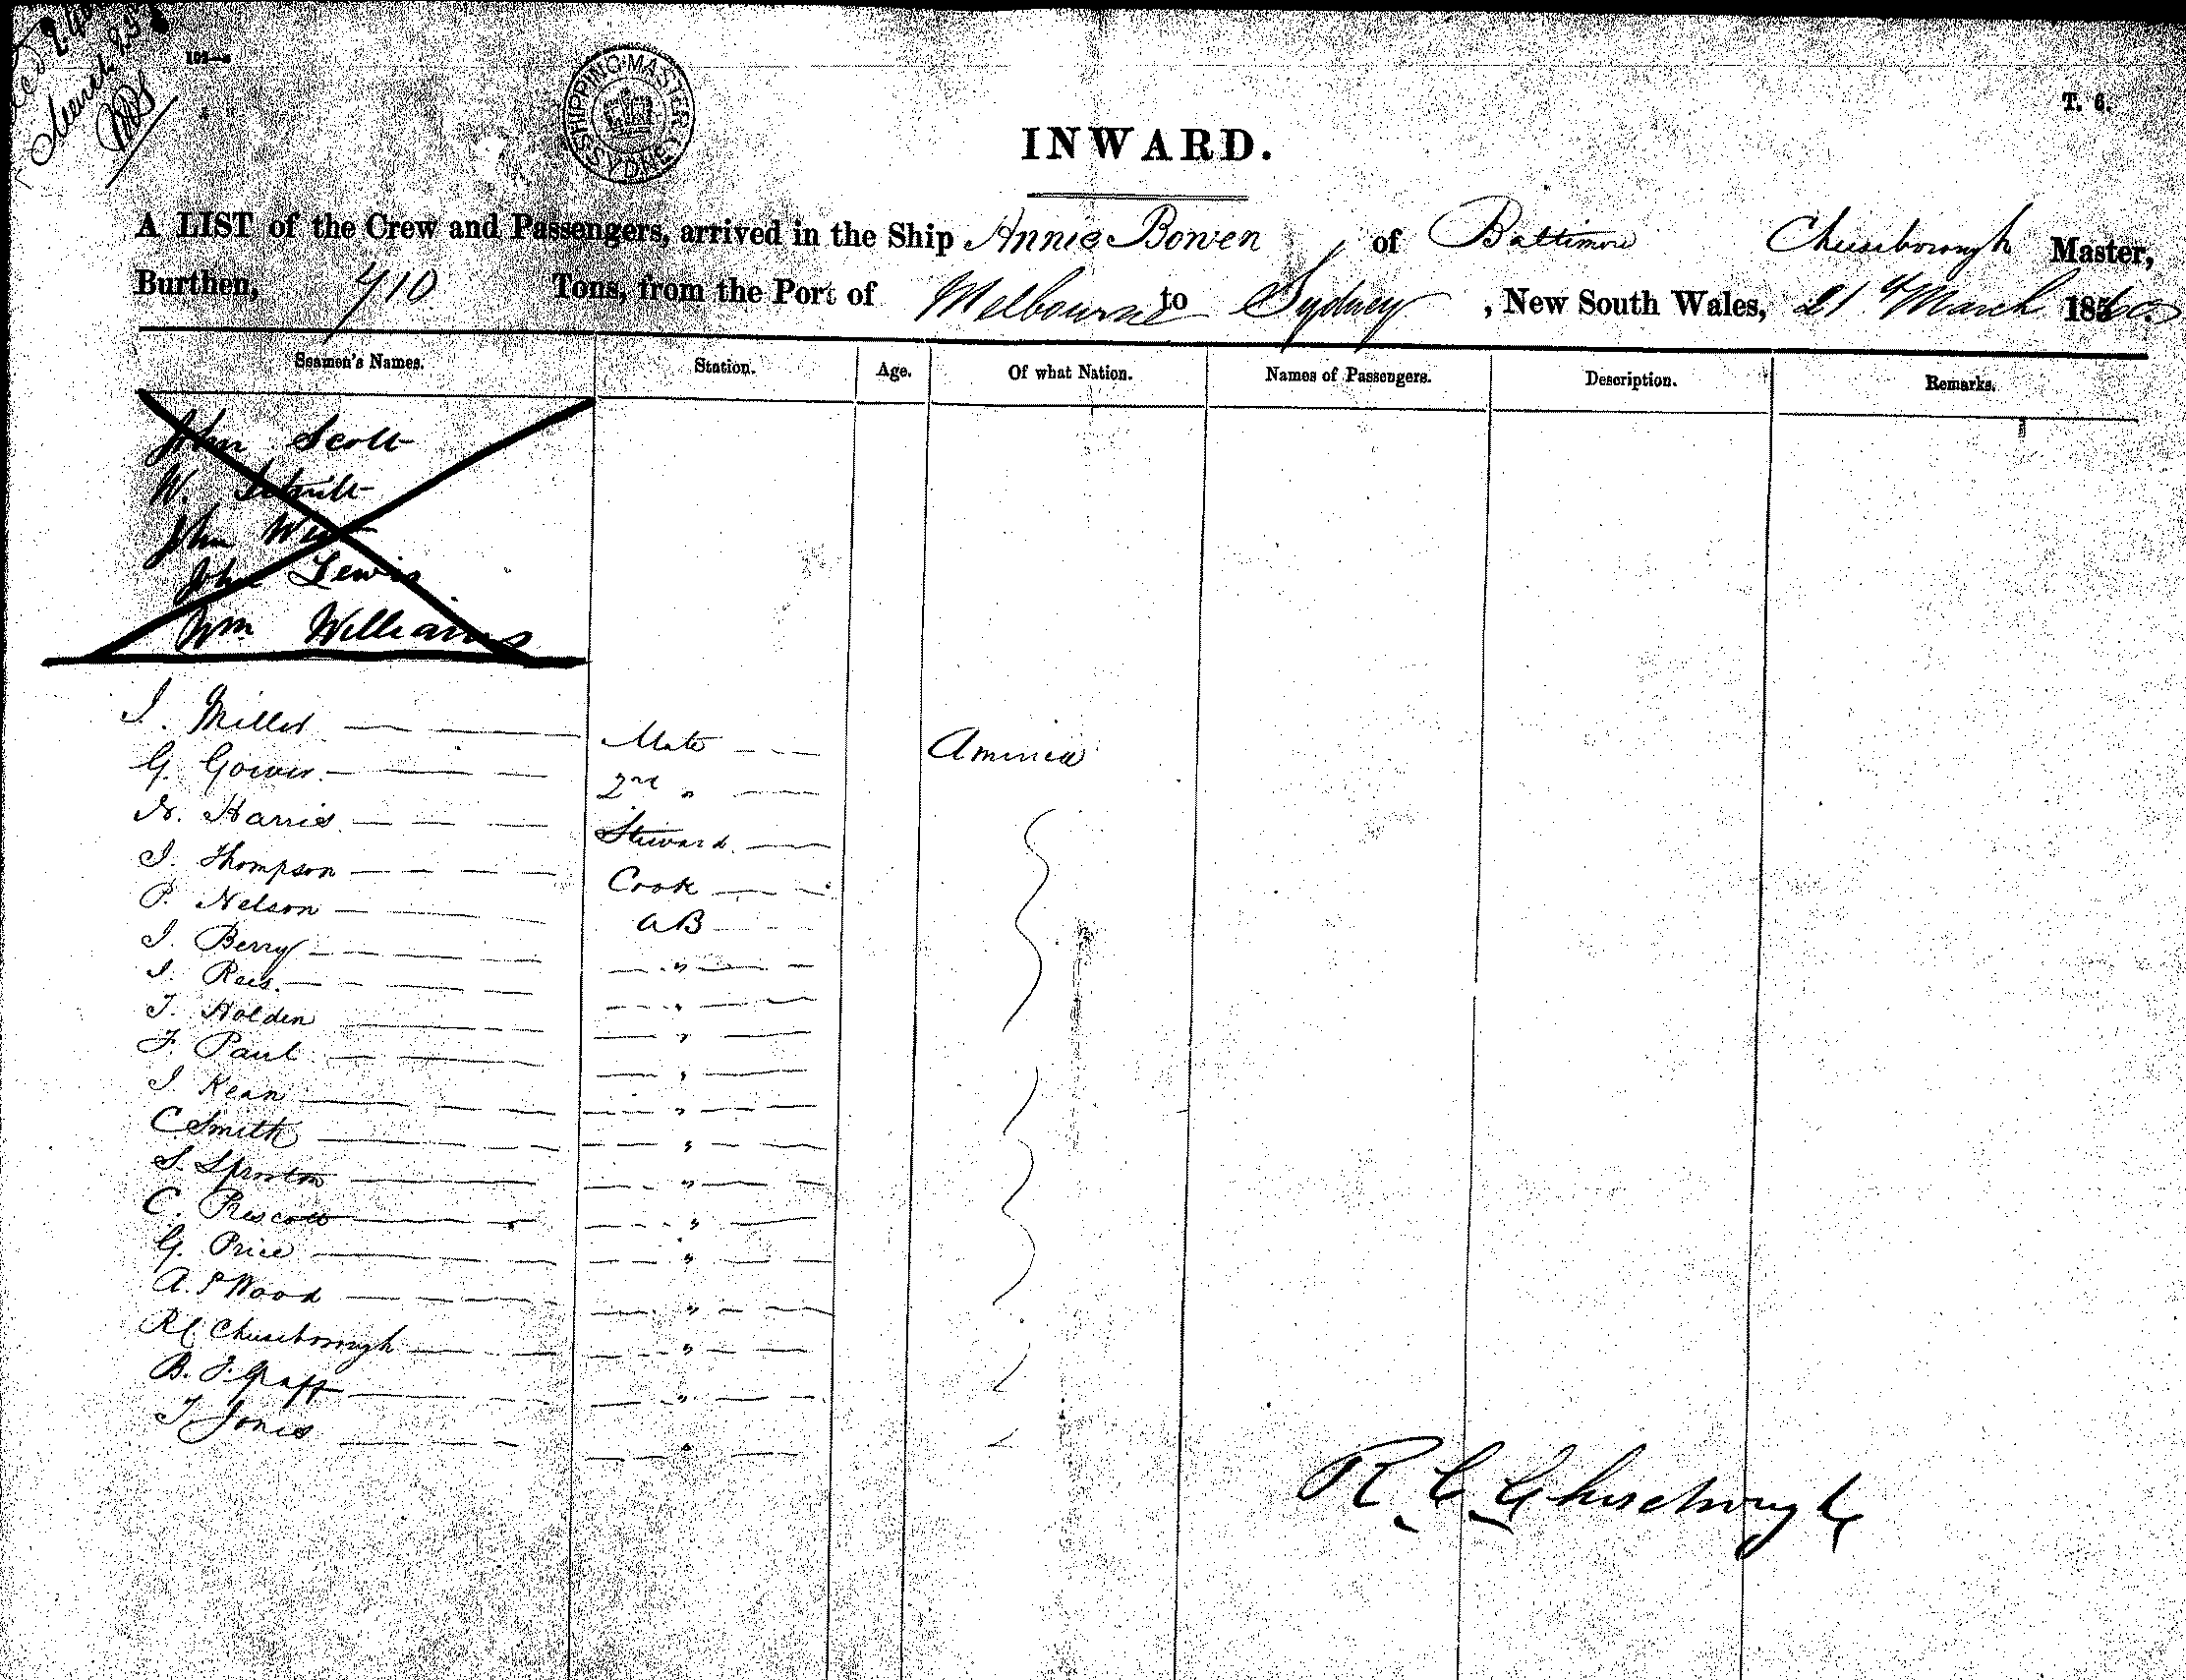 102—a
T. 6.
SHIPPING MASTER'S SYDNEY
INWARD.
A LIST of the Crew and Passengers, arrived in the Ship Annie Bowen of Baltimore Cheeseborough Master,
Burthen, 410 Tons, from the Port of Melbourne to Sydney, New South Wales, 21st March 1860
Seamen's Names. Station. Age. Of what Nation. Names of Passengers. Description. Remarks.
John Scott
W.
John West
John Lewis
Wm Williams
J. Miller Mate America
G. Gower 2nd "
H. Harris Steward
J. Thompson Cook
P. Nelson AB
J. Berry "
J. Rees "
T. Holden "
F. Paul "
J. Kean "
C. Smith "
S. Sproston "
C. Prescott "
G. Price "
A. P Wood "
R C Cheeseborough "
B. J. Graff "
T Jones "
R C Cheeseborough